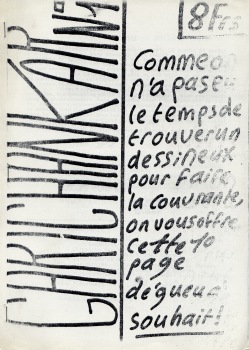 8Frs
Comme on
n'a pas eu
le temps de
trouver un
dessineux
pour faire,
la couvrante,
on vous offre
cette 1º
page
dégueu à
souhait!